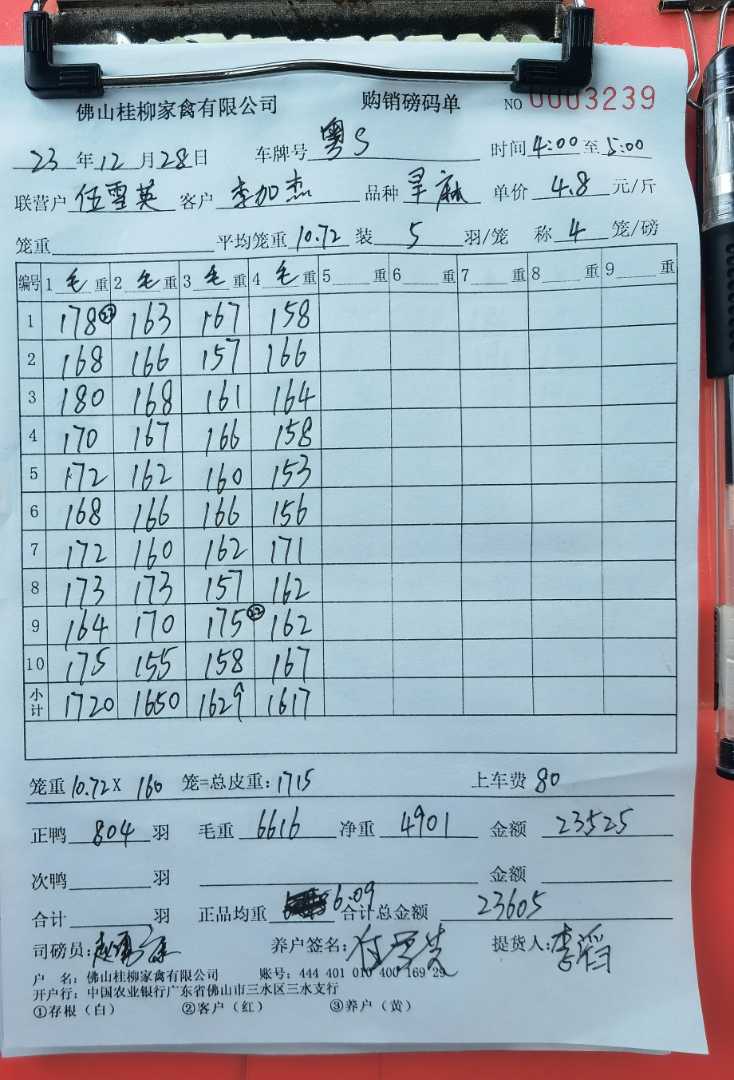 佛山桂柳家禽有限公司 购销磅码单 NO 0003239
23 年 12 月 28 日 车牌号 粤S 时间 4:00 至 5:00
联营户 伍雪英 客户 李加杰 品种 旱麻 单价 4.8 元/斤
笼重 平均笼重 10.72 装 5 羽/笼 称 4 笼/磅
编号 1 毛 重 2 毛 重 3 毛 重 4 毛 重 5 重 6 重 7 重 8 重 9 重
1 178 163 167 158
2 168 166 157 166
3 180 168 161 164
4 170 167 166 158
5 172 162 160 153
6 168 166 166 156
7 172 160 162 171
8 173 173 157 162
9 164 170 175 22 162
10 175 155 158 167
小计 1720 1650 1629 1617
笼重 10.72 X 160 笼=总皮重: 1715 上车费 80
正鸭 804 羽 毛重 6616 净重 4901 金额 23525
次鸭 羽 金额
合计 羽 正品均重 6.09 合计总金额 23605
司磅员: 养户签名: 伍雪英 提货人: 李滔
户 名: 佛山桂柳家禽有限公司 账号: 444 401 010 400 169 29
开户行: 中国农业银行广东省佛山市三水区三水支行
①存根(白) ②客户(红) ③养户(黄)